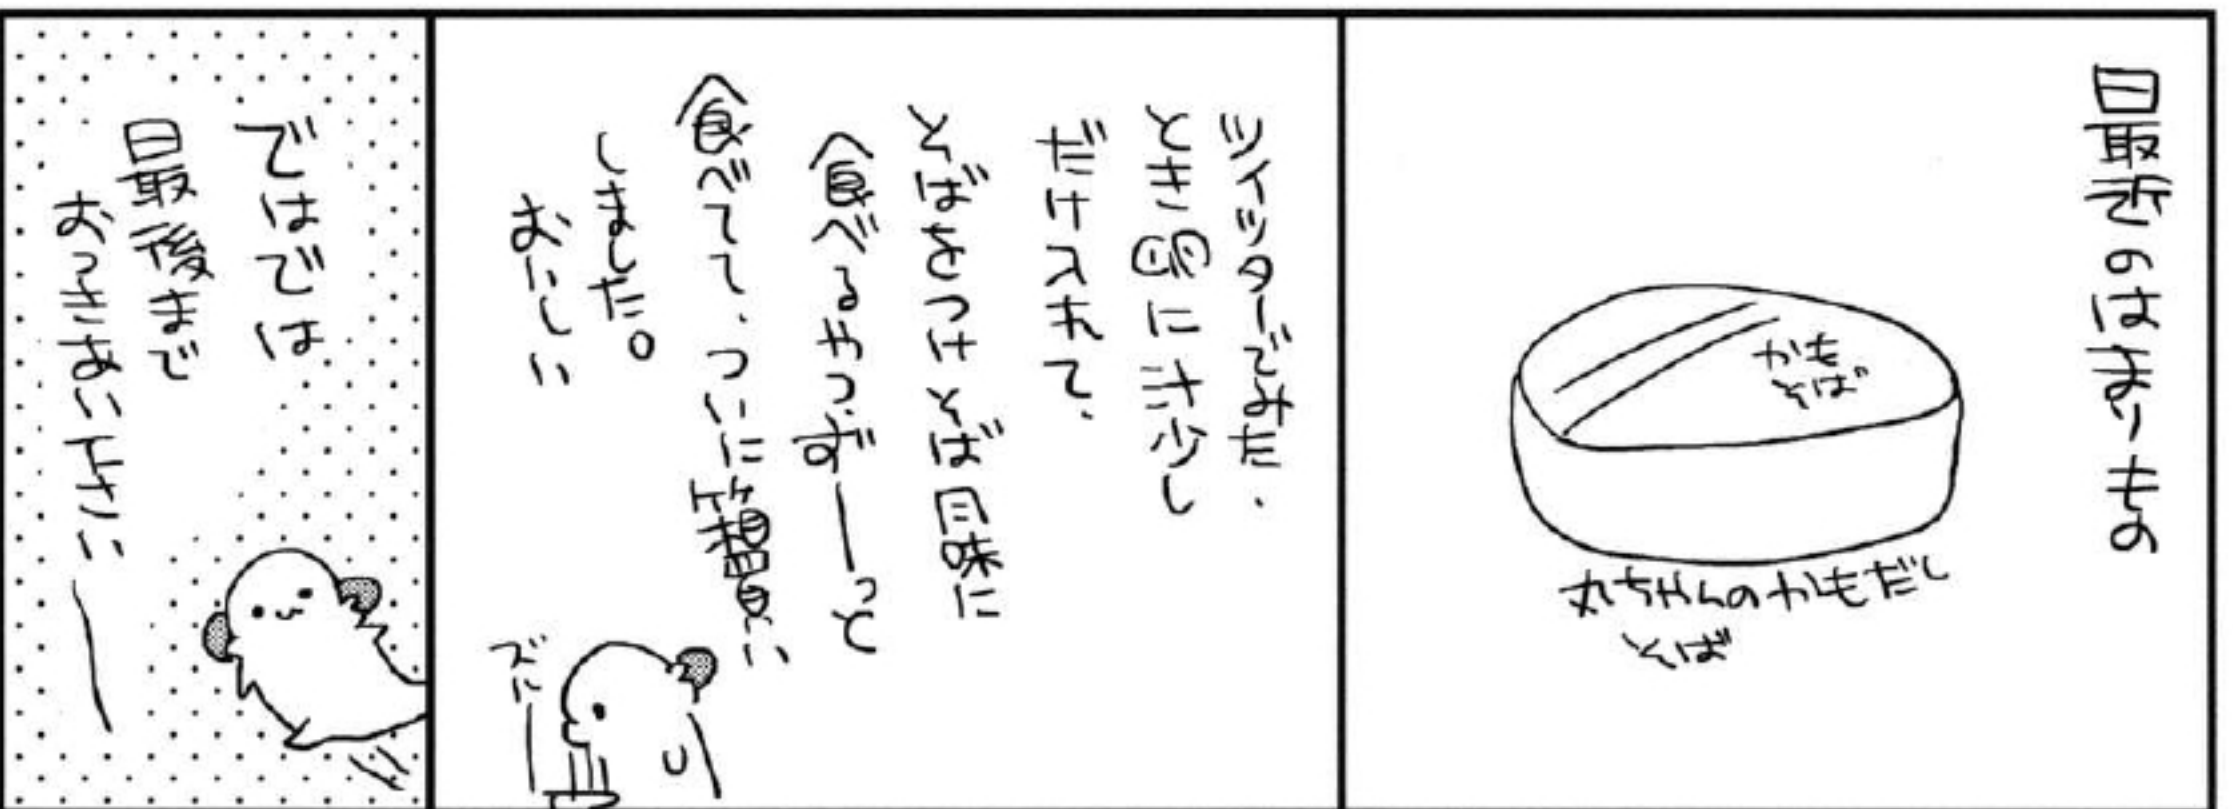 最近のはまりもの
かも
そば
丸ちゃんのかもだし
そば
ツイッターでみた、
とき卵に汁少し
だけ入れて、
そばをつけそば風味に
食べるやつずーっと
食べてて、ついに箱買い
しました。
おいしい
ズー
ではでは
最後まで
おつきあい下さい―